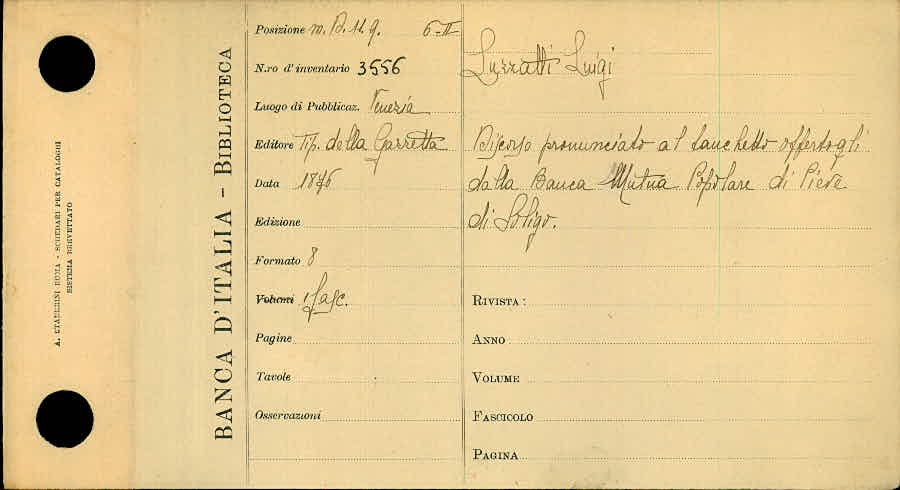 A. STADERINI ROMA - SCHEDARI PER CATALOGHI
SISTEMA BREVETTATO
BANCA D'ITALIA - BIBLIOTECA
Posizione m. B. 11. 9. 6-II
N.ro d'inventario 3556
Luogo di Pubblicaz. Venezia
Editore Tip. della Gazzetta
Data 1876
Edizione
Formato 8
Volumi 1 fasc.
Pagine
Tavole
Osservazioni
Luzzatti Luigi
Discorso pronunciato al banchetto offertogli
dalla Banca Mutua Popolare di Pieve
di Soligo.
RIVISTA :
ANNO
VOLUME
FASCICOLO
PAGINA